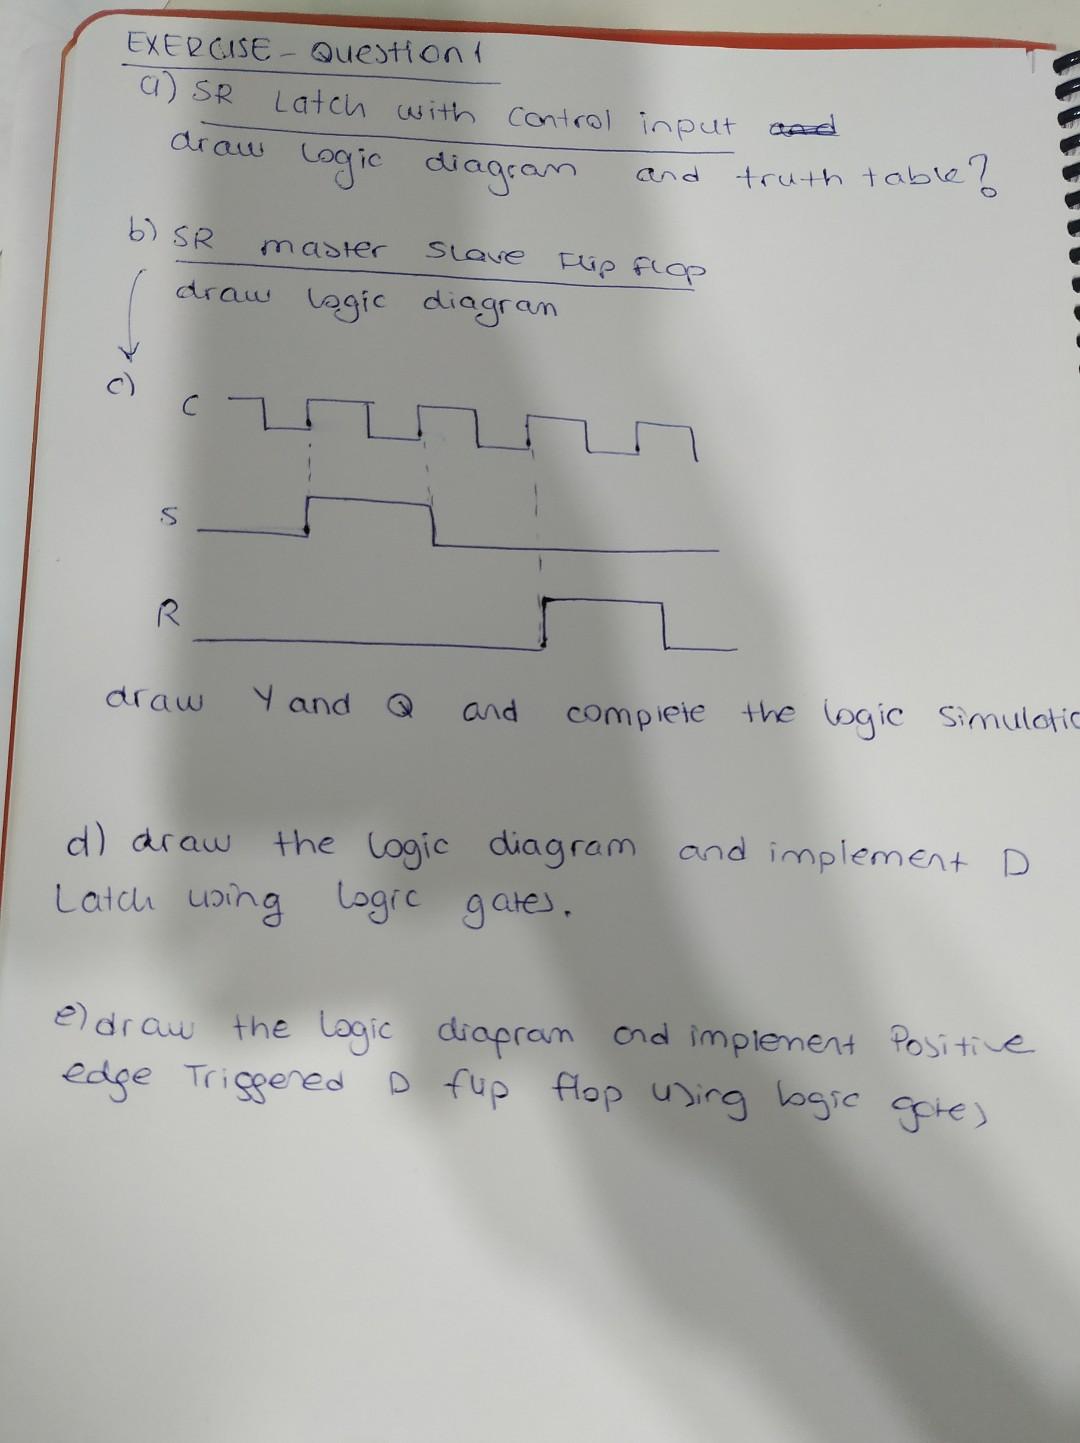 EXERCISE - Question 1
a) SR Latch with control input and
draw logic diagram and truth table?
b) SR master slave Flip flop
draw logic diagram
c)
C
S
R
draw Y and Q and complete the logic simulatio
d) draw the logic diagram and implement D
Latch using logic gates.
e) draw the logic diagram and implement Positive
edge Triggered D flip flop using logic gates